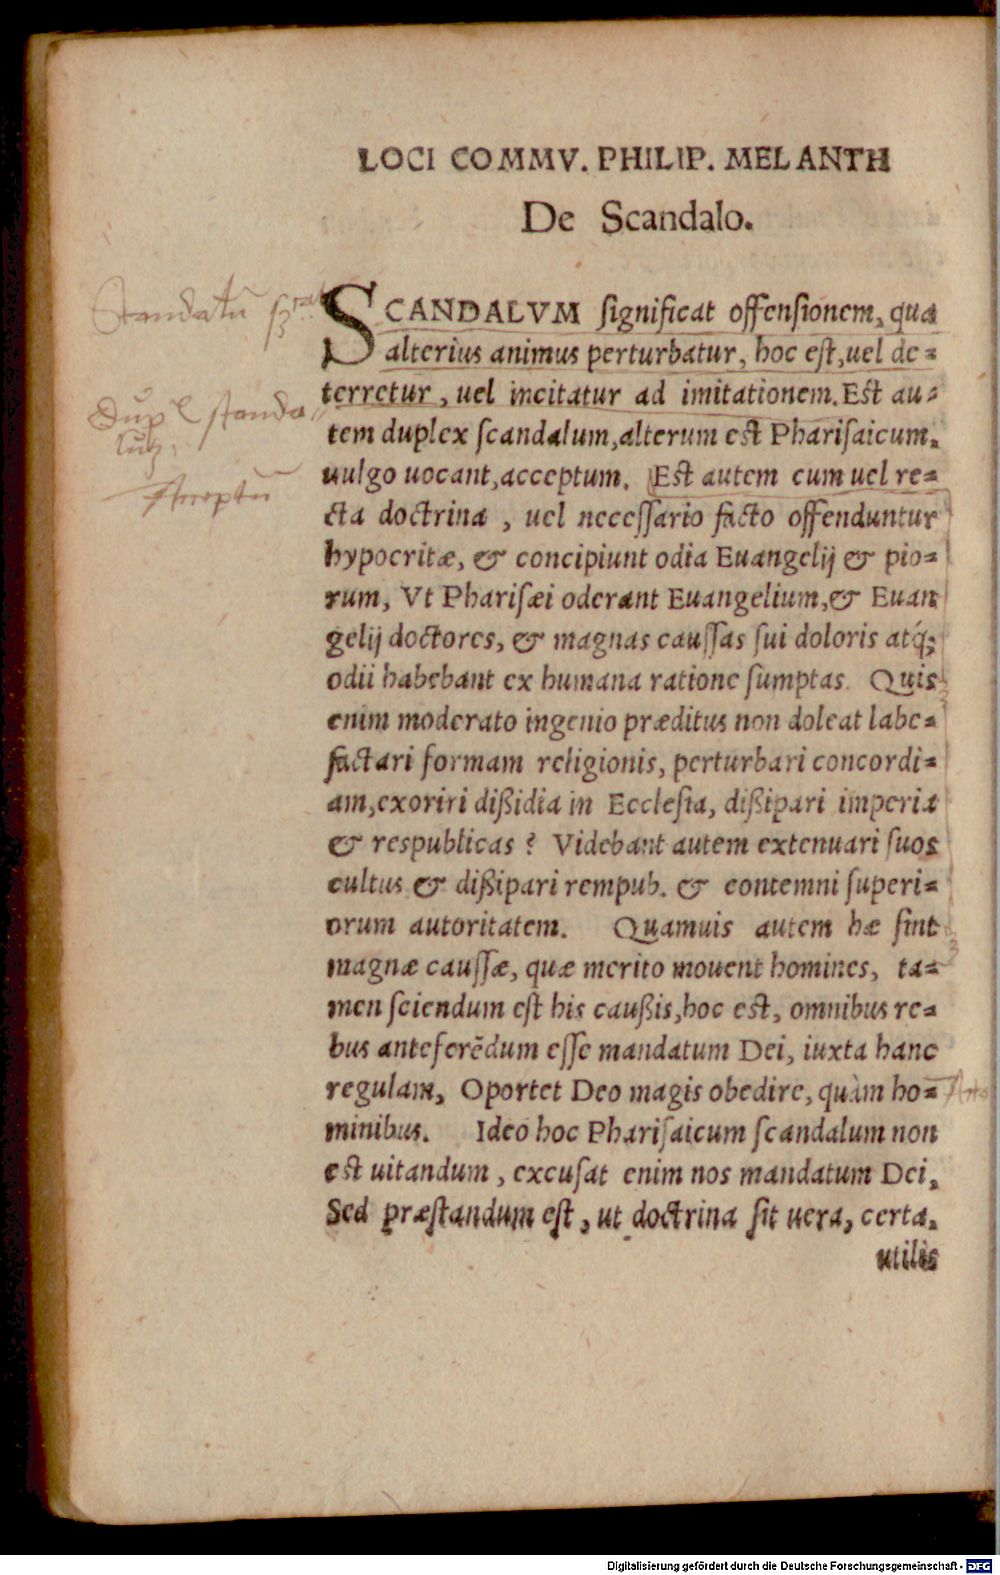 LOCI COMMV. PHILIP. MELANTH
De Scandalo.
SCANDALVM ſignificat offenſionem, qua
alterius animus perturbatur, hoc eſt, uel de=
terretur, uel incitatur ad imitationem. Eſt au=
tem duplex ſcandalum, alterum eſt Phariſaicum,
uulgo uocant, acceptum. Eſt autem cum uel re=
cta doctrina, uel neceſſario facto offenduntur
hypocritæ, & concipiunt odia Euangelij & pio=
rum, Vt Phariſæi oderant Euangelium, & Euan
gelij doctores, & magnas cauſſas ſui doloris atq́;
odii habebant ex humana ratione ſumptas. Quis
enim moderato ingenio præditus non doleat labe=
factari formam religionis, perturbari concordi=
am, exoriri dißidia in Eccleſia, dißipari imperia
& respublicas? Videbant autem extenuari ſuos
cultus & dißipari rempub. & contemni ſuperi=
orum autoritatem. Quamuis autem hæ ſint
magnæ cauſſæ, quæ merito mouent homines, ta=
men ſciendum eſt his caußis, hoc eſt, omnibus re=
bus anteferẽdum eſſe mandatum Dei, iuxta hanc
regulam, Oportet Deo magis obedire, quàm ho=
minibus. Ideo hoc Phariſaicum ſcandalum non
eſt uitandum, excuſat enim nos mandatum Dei,
Sed præſtandum eſt, ut doctrina ſit uera, certa,
utilis
Digitalisierung gefördert durch die Deutsche Forschungsgemeinschaft - DFG